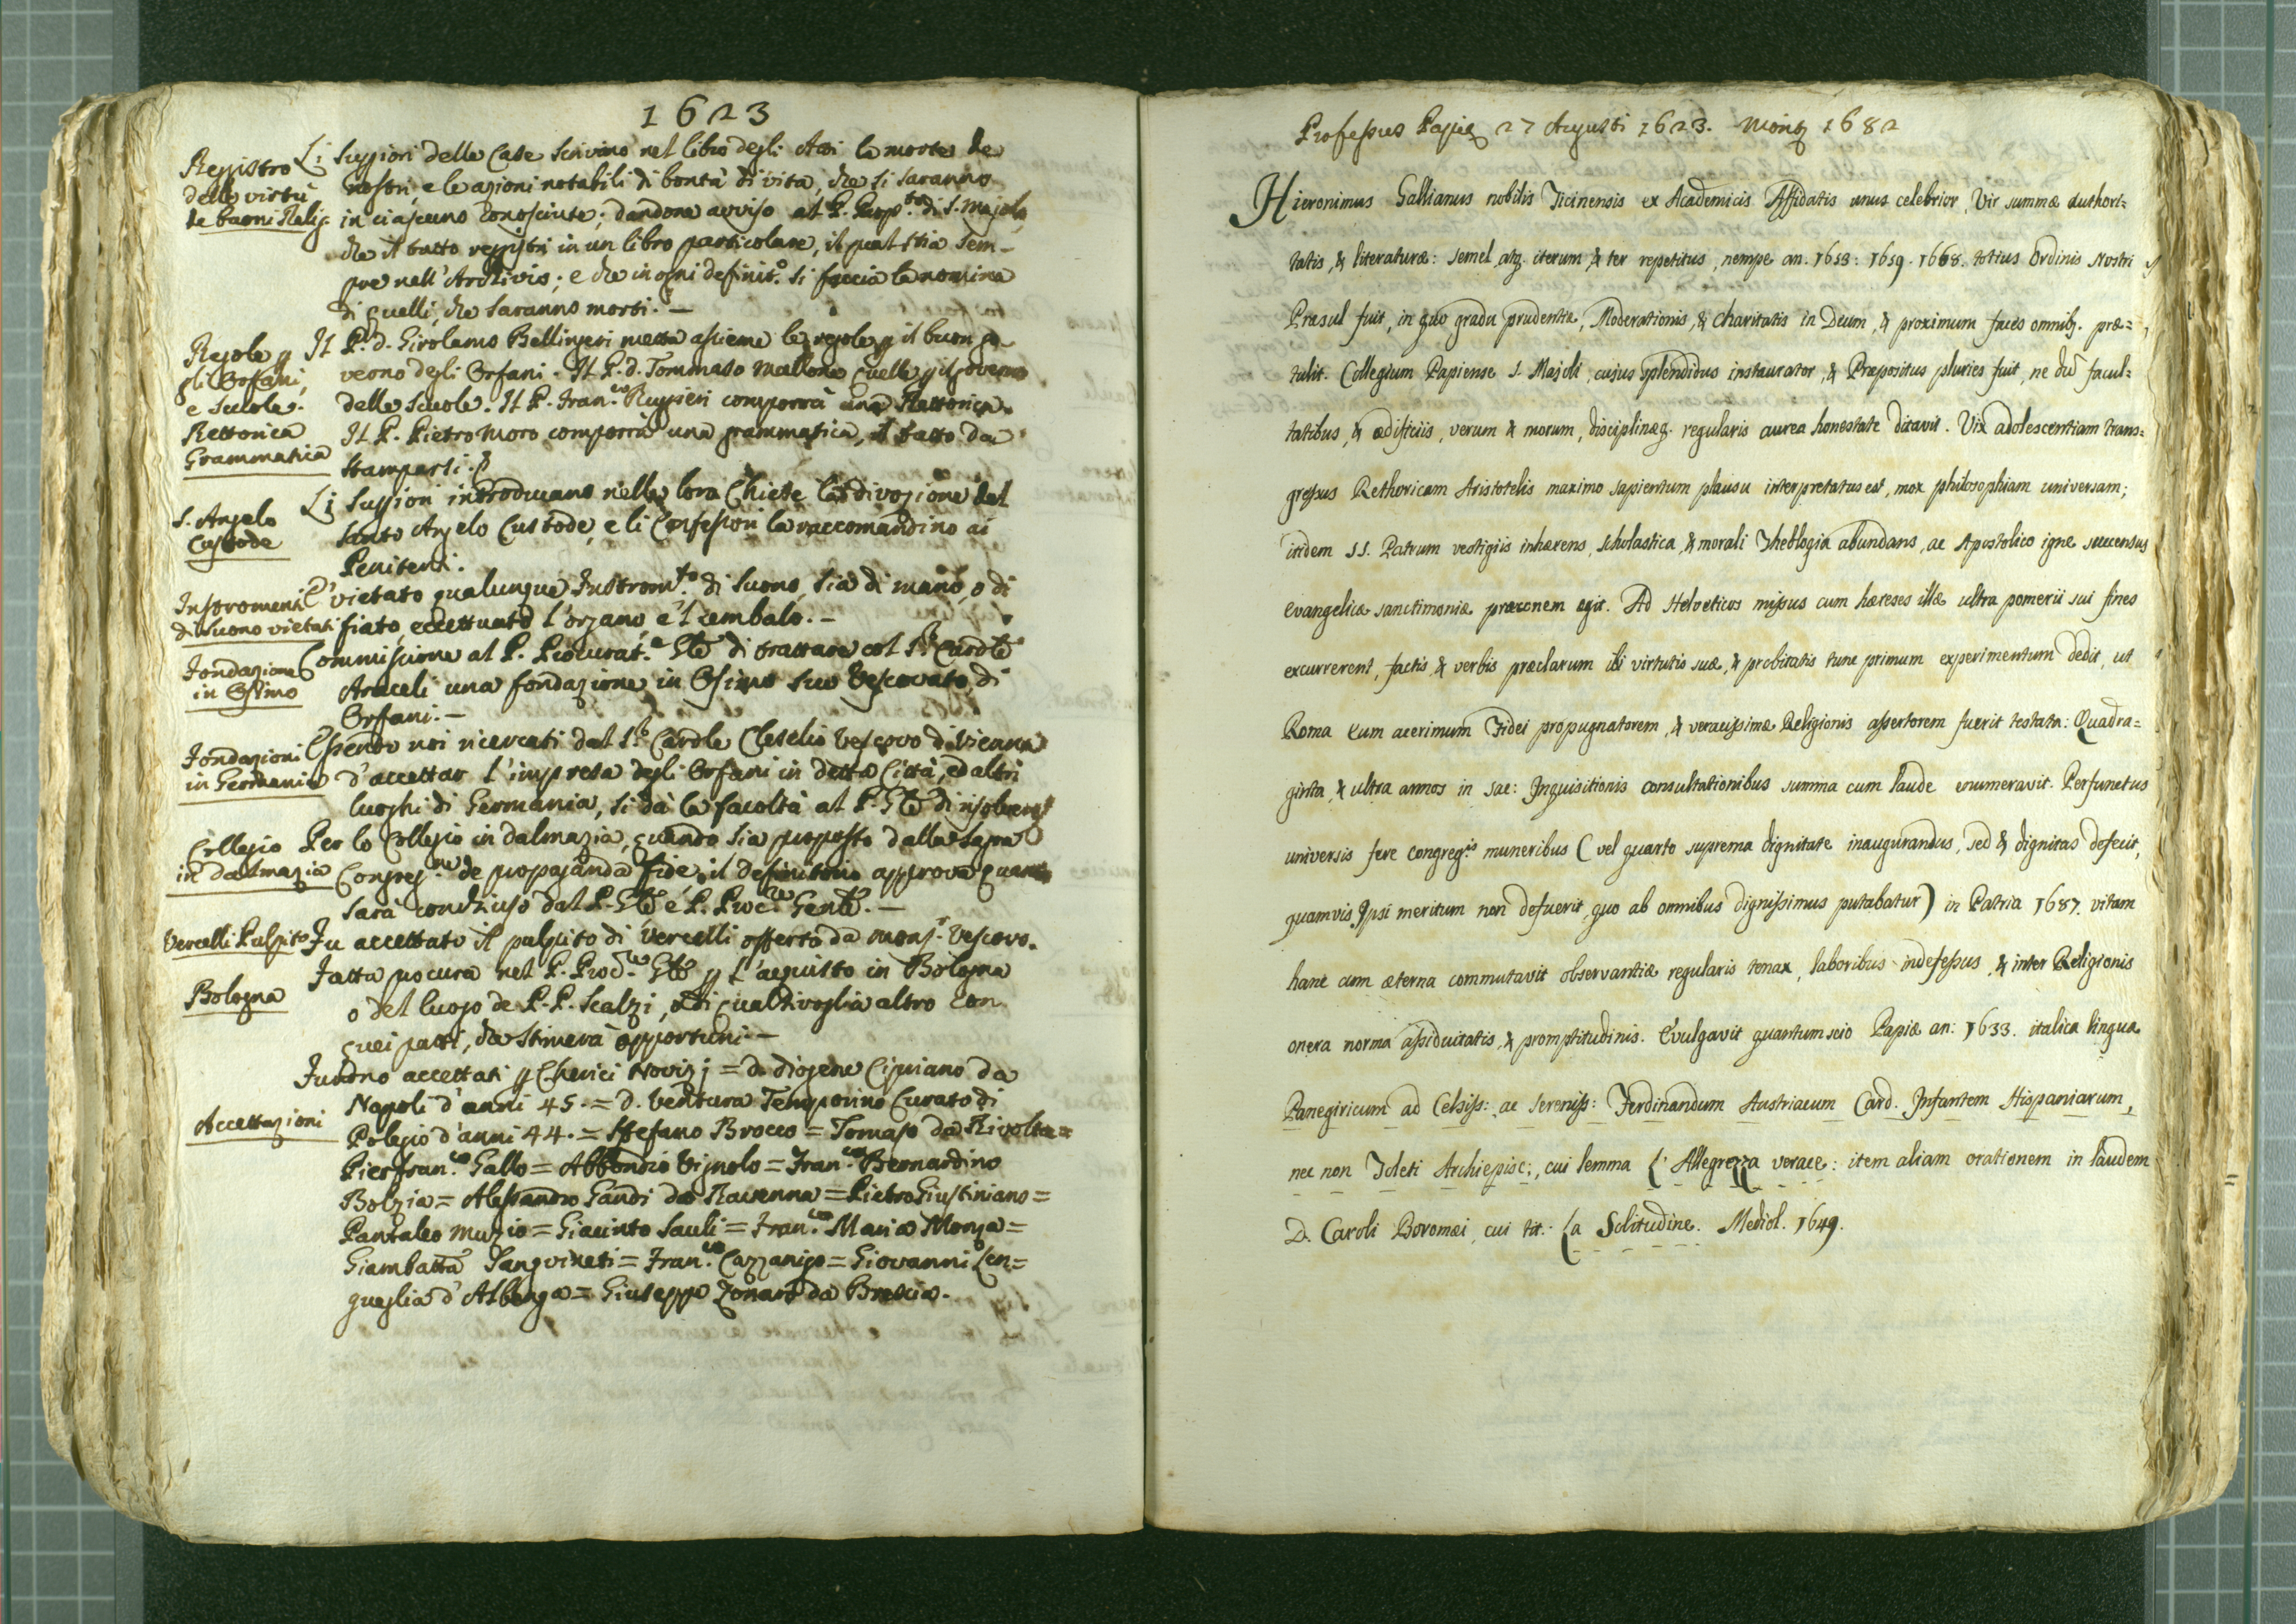 1623
Registro
delle virtù
de buoni Relig.
Li Superiori delle Case scrivino nel libro degli Atti le morti de
nostri, e le azioni notabili di bontà di vita, che si saranno
in ciascuno conosciute; dandone avviso al P. Prep.to di S. Majolo,
che il tutto registri in un libro particolare, il qual stia sem-
pre nell' Archivio; e che in ogni definit.o si faccia la nomina
di quelli, che saranno morti. –
Regole p
gli Orfani,
e Scuole.
Rettorica
Grammatica
Il P. d. Girolamo Bellingeri metta assieme le regole p il buon go-
verno degli Orfani. Il P. d. Tommaso Mallone quelle p il governo
delle Scuole. Il P. Fran.co Ruggieri comporrà una Rettorica.
Il P. Pietro Moro comporrà una grammatica, il tutto da
stamparsi.
S. Angelo
Custode
Li Superiori introducano nelle loro Chiese la divozione del
Santo Angelo Custode, e li Confessori la raccomandino ai
Penitenti.
Instromenti
di suono vietati
E' vietato qualunque Instrom.to di suono, sia di mano, o di
fiato, eccettuato l'organo, e 'l cembalo. –
Fondazione
in Osimo
Commissione al P. Procurat.e Gle di trattare col S.r Cardle
Araceli una fondazione in Osimo suo Vescovato, di
Orfani. –
Fondazioni
in Germania
Essendo noi ricercati dal S.r Cardle Cleselio Vescovo di Vienna
d'accettar l'impresa degli Orfani in detta Città, ed altri
luoghi di Germania, si dà la facoltà al P. Gle di risolvere
Collegio
in Dalmazia
Per lo Collegio in Dalmazia, quando sia proposto dalla Sagra
Congreg.ne de propaganda fide, il definitorio approva quanto
sarà conchiuso dal P. Gle e P. Proc.re Genle. –
Vercelli Pulpito
Fu accettato il pulpito di Vercelli offerto da Mons.r Vescovo.
Bologna
Fatta procura nel P. Proc.re Gle p l'acquisto in Bologna
o del luogo de P.P. Scalzi, o di qualsivoglia altro con
quei patti, che stimerà opportuni. –
Accettazioni
Furono accettati p Cherici Novizj = d. Diogene Cipriano da
Napoli d'anni 45. = D. Ventura Temporino Curato di
Polegio d'anni 44. = Steffano Brocco = Tomaso da Rivolta =
Pierfran.co Gallo = Abbondio Vignolo = Fran.co Bernardino
Bolzia = Alessandro Gandi da Ravenna = Pietro Giustiniano =
Pantaleo Muzio = Giacinto Sauli = Fran.co Maria Monza =
Giambatta Sanguineti = Fran.co Cazzanigo = Giovanni Len=
gueglia d'Albenga = Giuseppe Zonaro da Brescia.
Professus Papiæ 27 Augusti 1623. 1682
Hieronimus Gallianus nobilis Ticinensis ex Academicis Affidatis unus celebrior, Vir summæ Authori=
tatis, & literaturæ: semel, atq. iterum, & ter repetitus, nempe an. 1653: 1659. 1668. totius Ordinis Nostri
Præsul fuit, in quo gradu prudentiæ, Moderationis, & charitatis in Deum, & proximum faces omnib. præ=
tulit. Collegium Papiense S. Majoli, cujus splendidus instaurator, & Præpositus pluries fuit, ne dũ facul=
tatibus, & ædificiis, verum & morum, disciplinæq. regularis aurea honestate ditavit. Vix adolescentiam trans=
gressus Rethoricam Aristotelis maximo sapientum plausu interpretatus est, mox philosophiam universam;
itidem SS. Patrum vestigiis inhærens, scholastica, & morali Theologia abundans, ac Apostolico igne succensus
evangelicæ sanctimoniæ præconem egit. Ad Helveticos missus cum hæreses illæ ultra pomerii sui fines
excurrerent, factis, & verbis præclarum ibi virtutis suæ, & probitatis tunc primum experimentum dedit, ut
Roma eum acerimum Fidei propugnatorem, & veracissimæ Religionis assertorem fuerit testata: Quadra=
ginta, & ultra annos in sac: Inquisitionis consultationibus summa cum laude enumeravit. Perfunctus
universis fere congreg.is muneribus (vel quarto suprema dignitate inaugurandus, sed & dignitas defecit,
quamvis Ipsi meritum non defuerit, quo ab omnibus dignissimus putabatur) in Patria 1687. vitam
hanc cum æterna commutavit observantiæ regularis tenax, laboribus indefessus, & inter Religionis
onera norma assiduitatis, & promptitudinis. Evulgavit quantum scio Papiæ an: 1633. italica lingua
Panegiricum ad Celsiss: ac Sereniss: Ferdinandum Austriacum Card. Infantem Hispaniarum,
nec non Toleti Archiepisc;, cui lemma L'Allegrezza verace: item aliam orationem in laudem
D. Caroli Boromæi, cui tit: La Solitudine. Mediol. 1649.